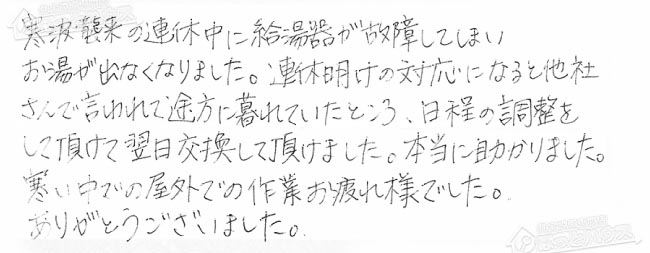 寒波襲来の連休中に給湯器が故障してしまい
お湯が出なくなりました。連休明けの対応になると他社
さんで言われて途方に暮れていたところ、日程の調整を
して頂けて翌日交換して頂けました。本当に助かりました。
寒い中での屋外での作業お疲れ様でした。
ありがとうございました。